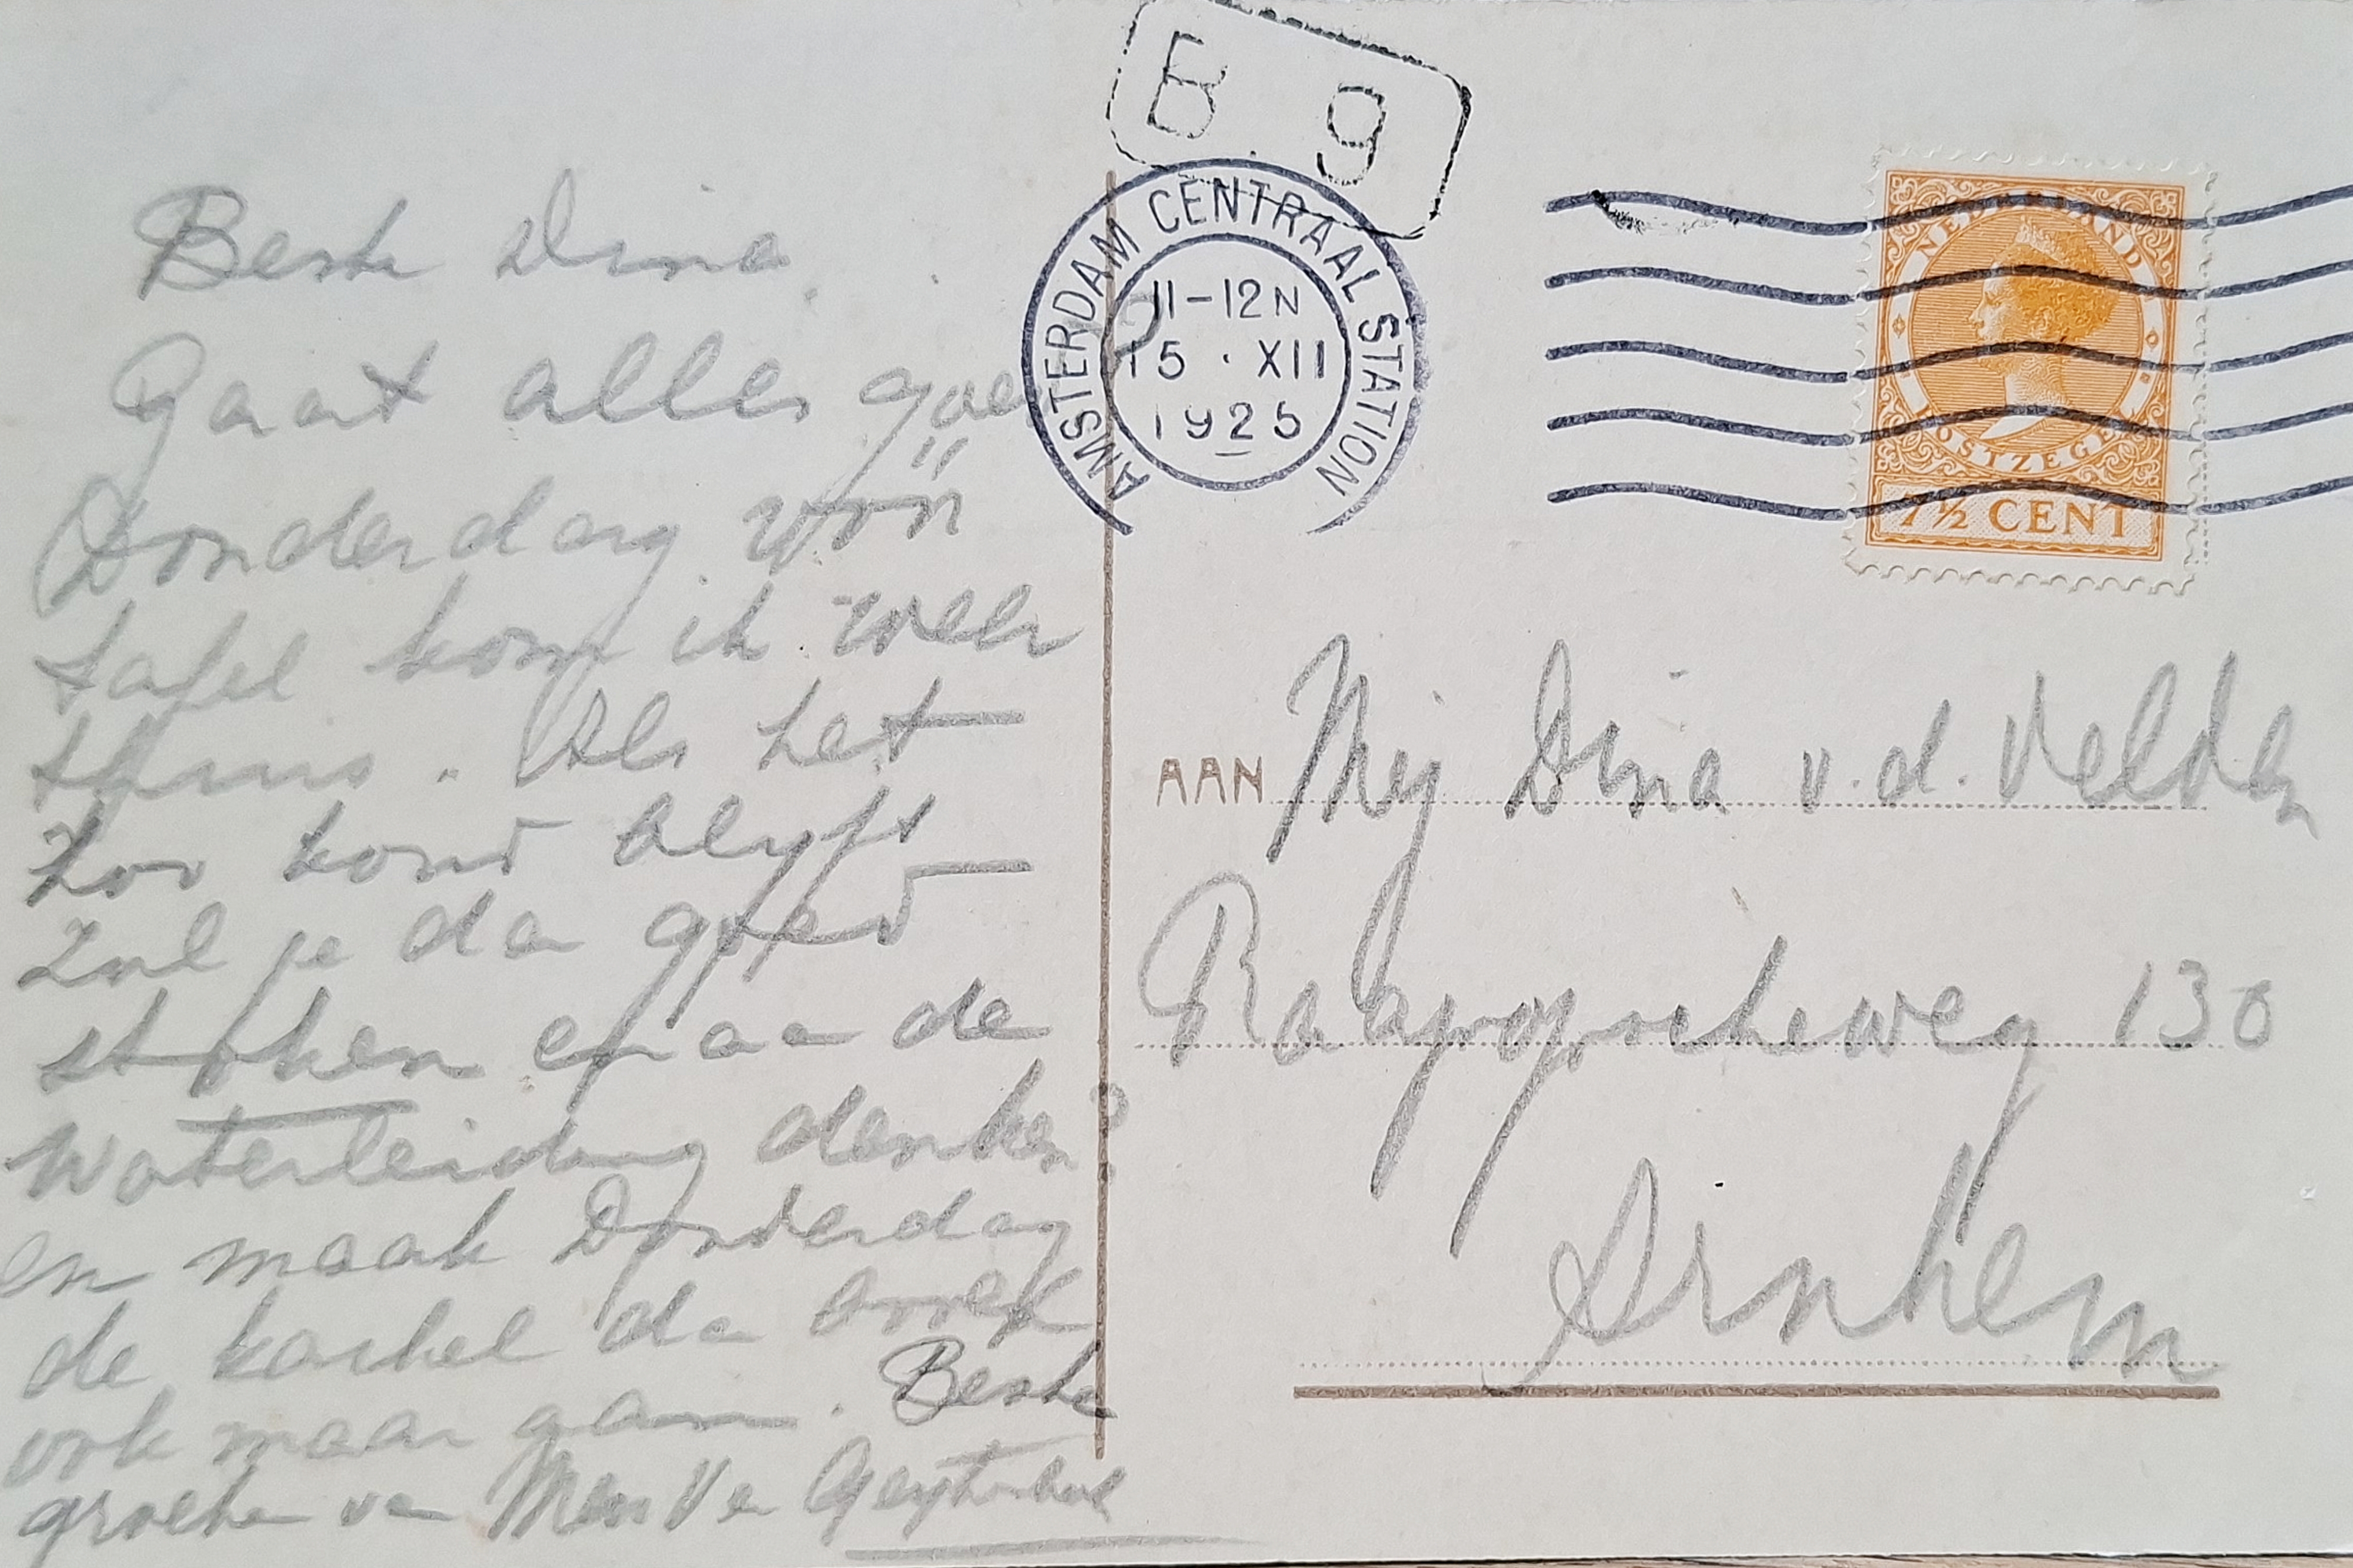 Beste Dina.
Gaat alles goed?
Donderdag vóór
tafel kom ik weer
thuis. Als het
zoo koud blijft
zul je dan goed
stoken en aan de
waterleiding denken?
en maak Donderdag
de kachel da
ook maar aan. Beste
groeten van Mevr Van
B 9
AMSTERDAM CENTRAAL STATION
11-12N
15 · XII
1925
NEDERLAND
POSTZEGEL
7½ CENT
AAN Mej Dina v.d. Velden
Raapopscheweg 130
Arnhem